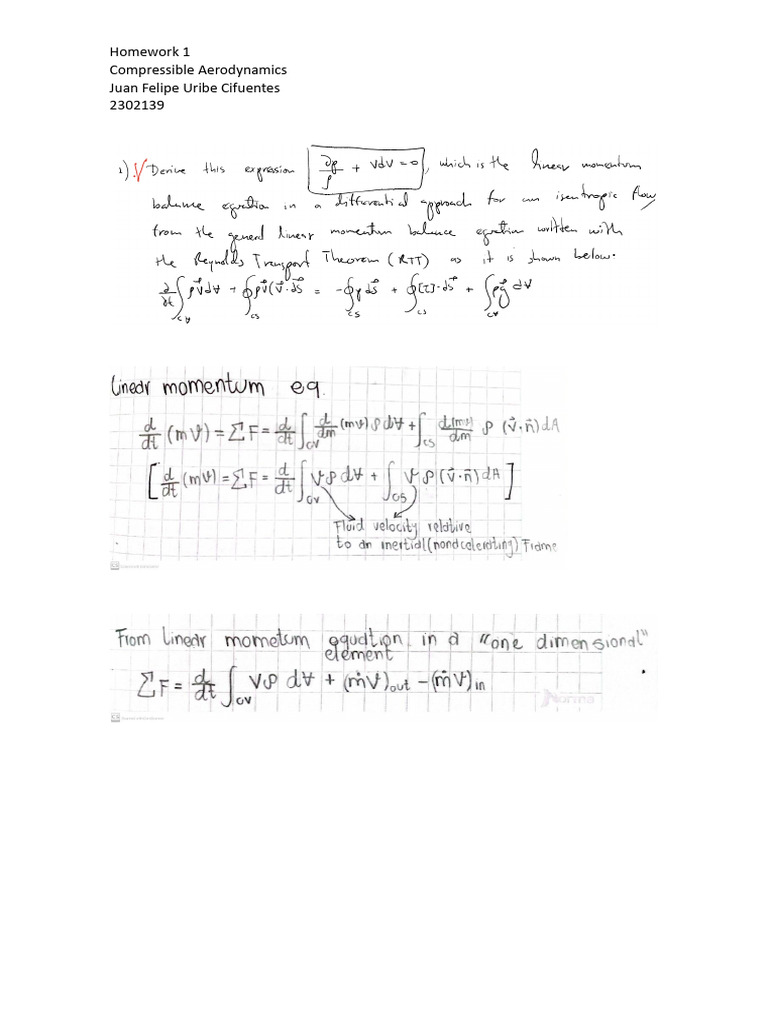 Homework 1
Compressible Aerodynamics
Juan Felipe Uribe Cifuentes
2302139
1) √ Derive this expression ∂p/ρ + VdV = 0, which is the linear momentum
balance equation in a differential approach for an isentropic flow
from the general linear momentum balance equation written with
the Reynolds Transport Theorem (RTT) as it is shown below:
∂/∂t ∫cv ρV⃗ dV + ∮cs ρV⃗(V⃗·dS⃗ = -∮cs p dS⃗ + ∮cs [τ]·dS⃗ + ∫cv ρg⃗ dV
Linear momentum eq.
d/dt (mV) = ΣF = d/dt ∫cv d/dm (mV) ρ dV + ∫cs d(mv)/dm ρ (V⃗·n⃗) dA
[ d/dt (mV) = ΣF = d/dt ∫cv Vρ dV + ∫cs Vρ (V⃗·n⃗) dA ]
Fluid velocity relative
to an inertial (nonaccelerating) Frame
From Linear mometum equation in a "one dimensional"
element
ΣF = d/dt ∫cv Vρ dV + (ṁV)out - (ṁV)in
Norma